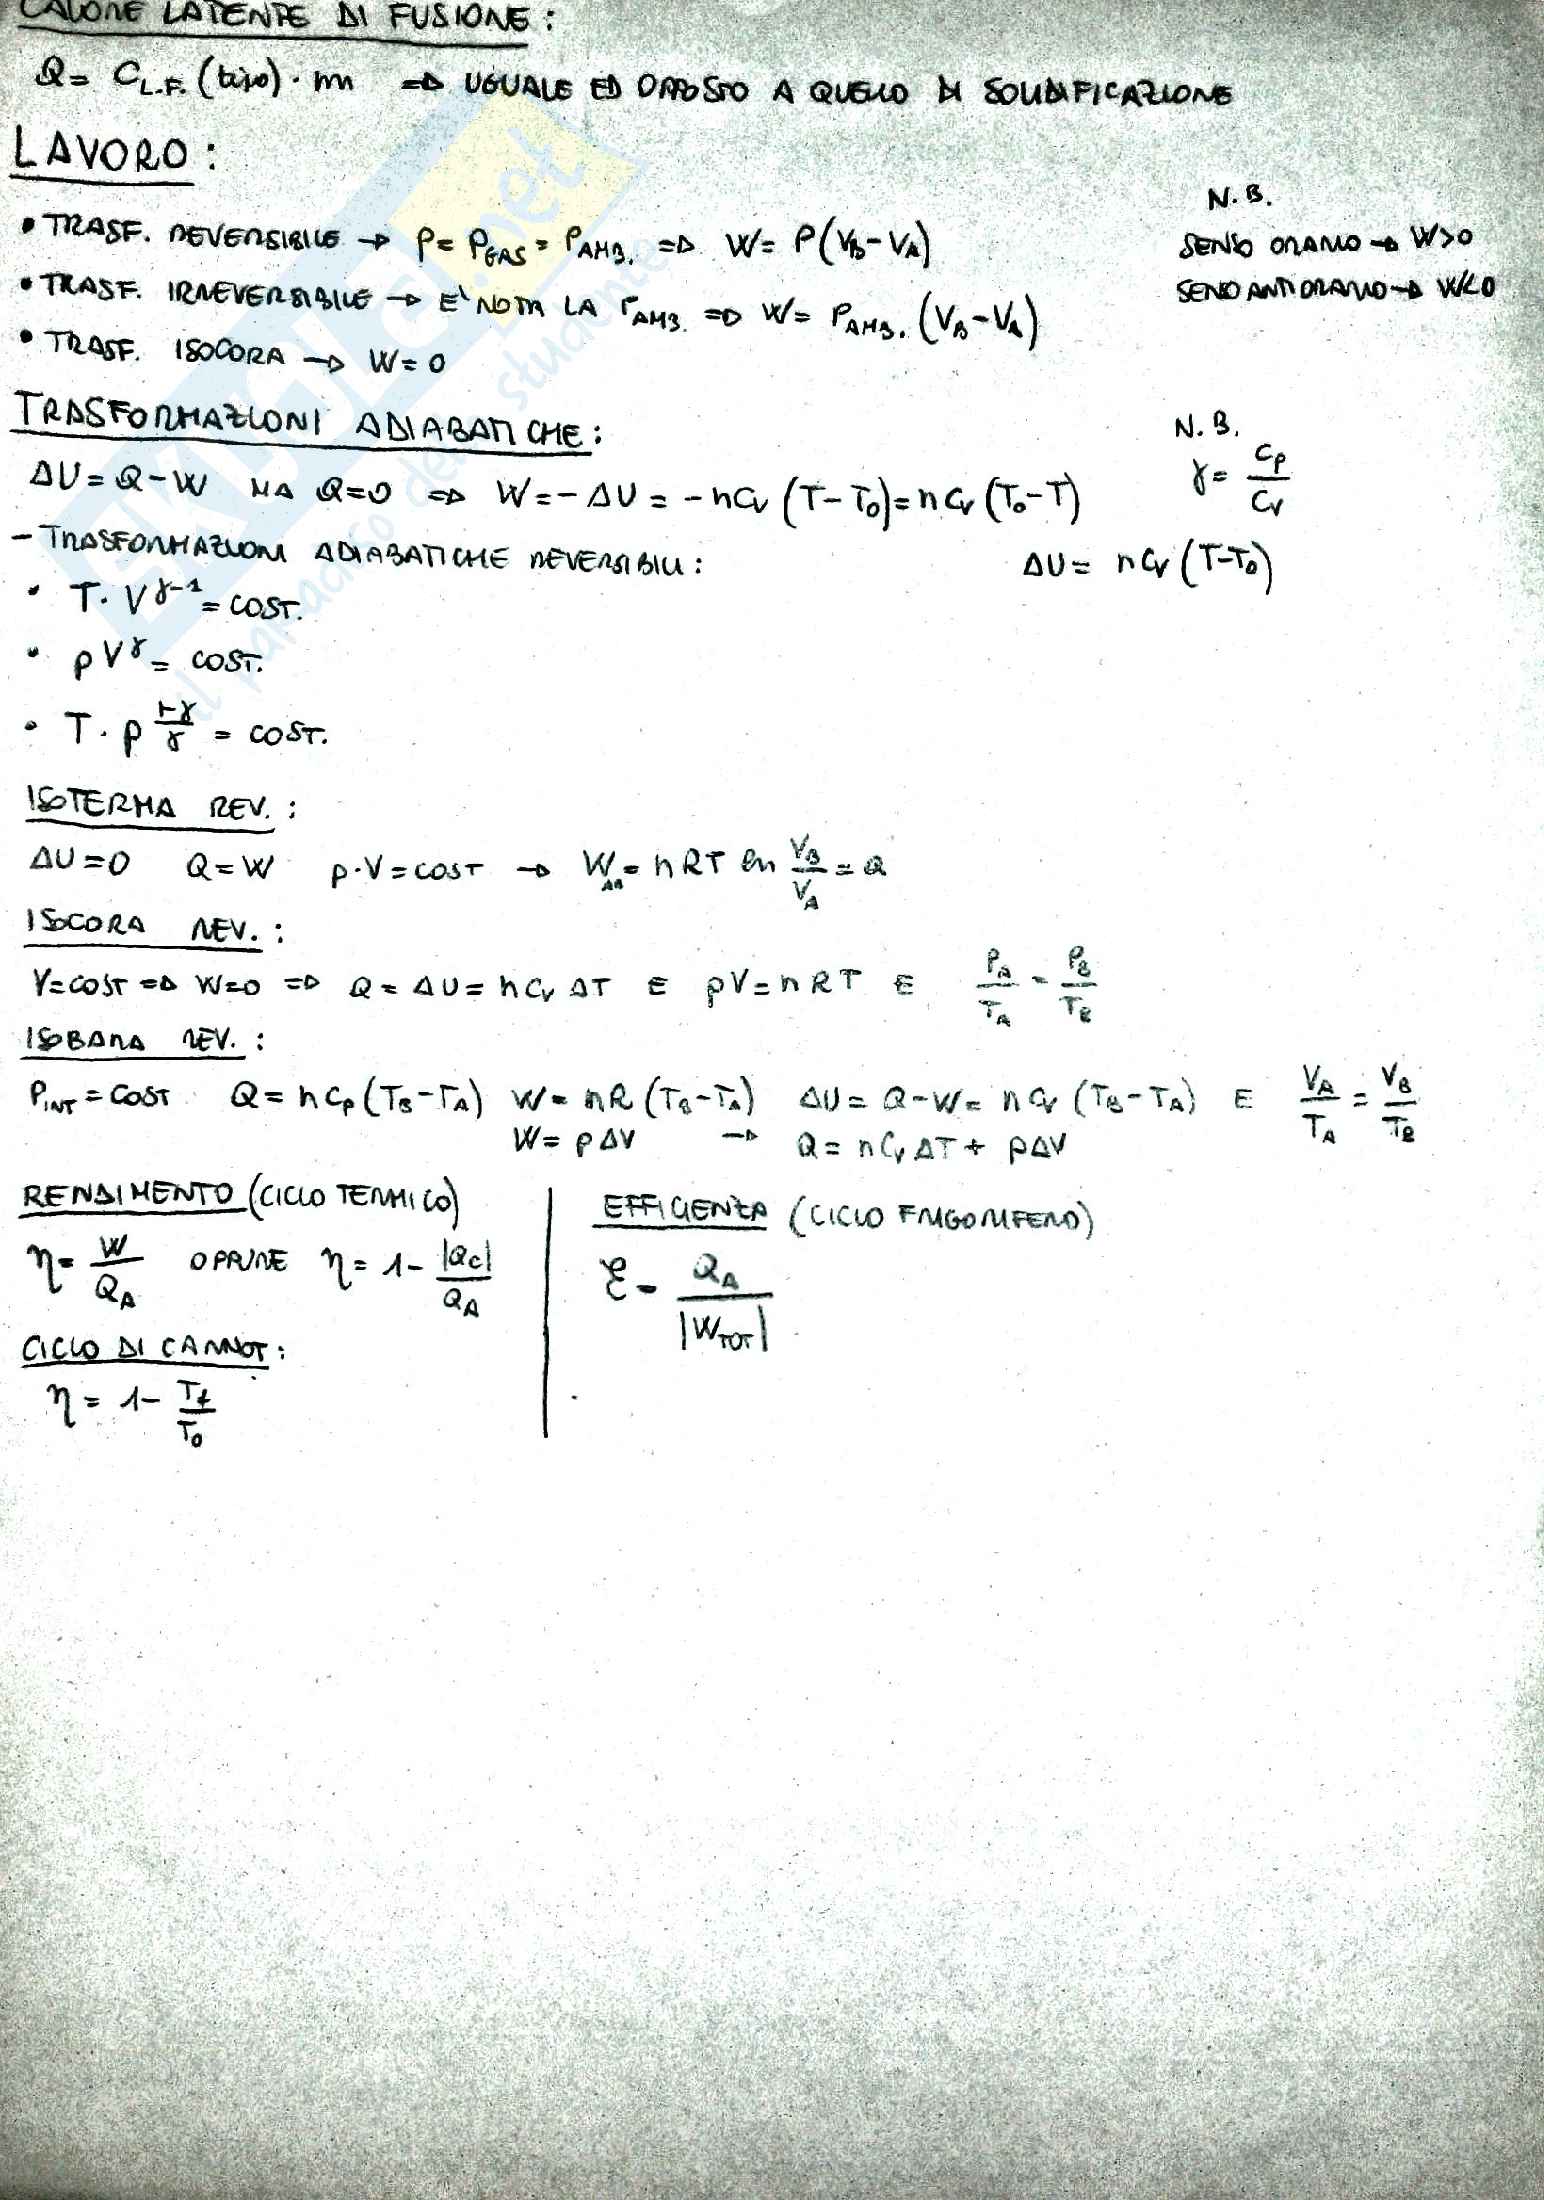 CALORE LATENTE DI FUSIONE:
Q = C_L.F. (tipo) · m ⇒ UGUALE ED OPPOSTO A QUELLO DI SOLIDIFICAZIONE
LAVORO:
N.B.
SENSO ORARIO → W>0
SENSO ANTIORARIO → W<0
• TRASF. REVERSIBILE → P = P_GAS = P_AMB. ⇒ W = P(V_B - V_A)
• TRASF. IRREVERSIBILE → E' NOTA LA P_AMB. ⇒ W = P_AMB. (V_B - V_A)
• TRASF. ISOCORA → W = 0
TRASFORMAZIONI ADIABATICHE:
N.B.
γ = Cp/Cv
ΔU = Q - W MA Q = 0 ⇒ W = -ΔU = -nCv (T - T₀) = nCv (T₀ - T)
ΔU = nCv (T - T₀)
- TRASFORMAZIONI ADIABATICHE REVERSIBILI:
• T · V^(γ-1) = COST.
• pV^γ = COST.
• T · p^((1-γ)/γ) = COST.
ISOTERMA REV.:
ΔU = 0 Q = W p·V = COST → W_AB = nRT ln V_B/V_A = Q
ISOCORA REV.:
V = COST ⇒ W = 0 ⇒ Q = ΔU = nCv ΔT E pV = nRT E P_A/T_A = P_B/T_B
ISOBARA REV.:
P_INT = COST Q = nCp (T_B - T_A) W = nR (T_B - T_A) ΔU = Q - W = nCv (T_B - T_A) E V_A/T_A = V_B/T_B
W = pΔV → Q = nCv ΔT + pΔV
RENDIMENTO (CICLO TERMICO)
η = W/Q_A OPPURE η = 1 - |Q_C|/Q_A
CICLO DI CARNOT:
η = 1 - T_f/T₀
EFFICIENZA (CICLO FRIGORIFERO)
ξ = Q_A/|W_TOT|
SKUOLA.net
il paradiso dello studente